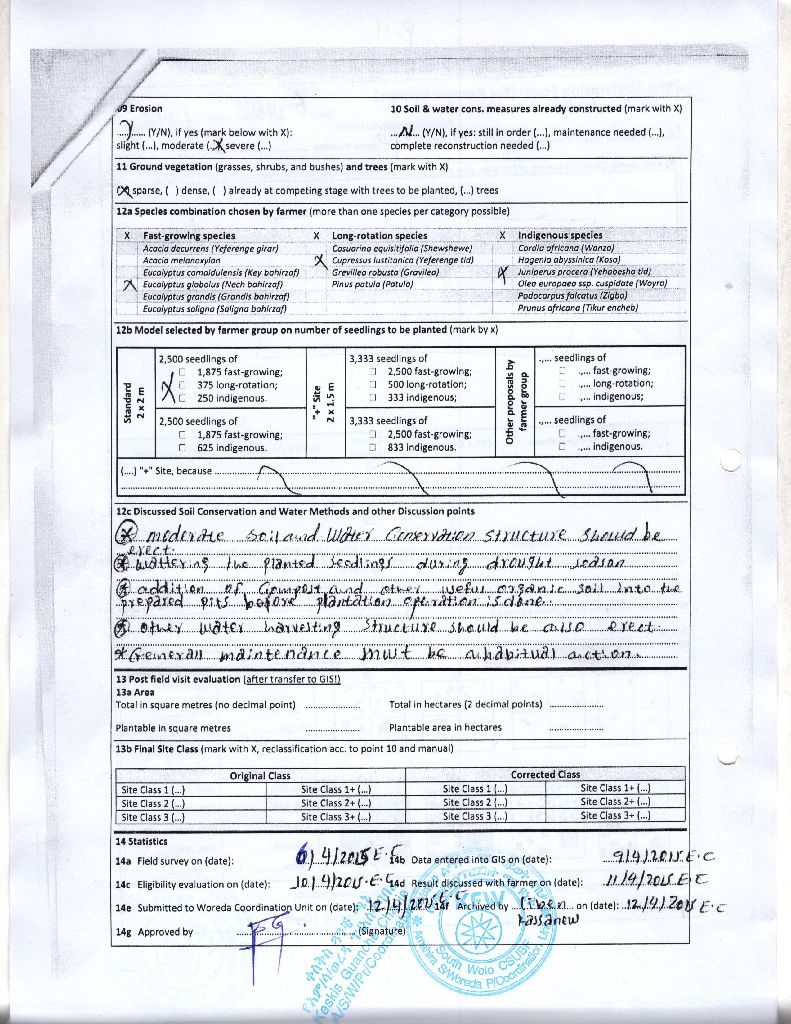 09 Erosion
10 Soil & water cons. measures already constructed (mark with X)
...Y.... (Y/N), if yes (mark below with X):
...N... (Y/N), if yes: still in order (...), maintenance needed (...),
slight (...), moderate (.X. severe (...)
complete reconstruction needed (...)
11 Ground vegetation (grasses, shrubs, and bushes) and trees (mark with X)
(X) sparse, ( ) dense, ( ) already at competing stage with trees to be planted, (...) trees
12a Species combination chosen by farmer (more than one species per category possible)
X Fast-growing species X Long-rotation species X Indigenous species
Acacia decurrens (Yeferenge girar) Casuarina equisitifolia (Shewshewe) Cordia africana (Wanza)
Acacia melanoxylon X Cupressus lustitanica (Yeferenge tid) Hagenia abyssinica (Koso)
Eucalyptus camaldulensis (Key bahirzaf) Grevillea robusta (Gravilea) X Juniperus procera (Yehabesha tid)
X Eucalyptus globolus (Nech bahirzaf) Pinus patula (Patula) Olea europaea ssp. cuspidate (Woyra)
Eucalyptus grandis (Grandis bahirzaf) Podocarpus falcatus (Zigba)
Eucalyptus saligna (Saligna bahirzaf) Prunus africana (Tikur encheb)
12b Model selected by farmer group on number of seedlings to be planted (mark by x)
Standard 2 x 2 m
2,500 seedlings of
1,875 fast-growing;
X 375 long-rotation;
250 indigenous.
2,500 seedlings of
1,875 fast-growing;
625 indigenous.
"+" Site 2 x 1.5 m
3,333 seedlings of
2,500 fast-growing;
500 long-rotation;
333 indigenous;
3,333 seedlings of
2,500 fast-growing;
833 indigenous.
Other proposals by farmer group
.,... seedlings of
.,... fast-growing;
.,... long-rotation;
.,... indigenous;
.,... seedlings of
.,... fast-growing;
.,... indigenous.
(....) "+" Site, because
12c Discussed Soil Conservation and Water Methods and other Discussion points
* moderate soil and Water Conservation structure should be
erect.
* wattering the planted seedlings during drought season
* addition of Compost and other usefus organic soil into the
prepared pits before plantation operation is done.
* other water harvesting structure should be also erect.
* Generall maintendnce must be a habitual action.
13 Post field visit evaluation (after transfer to GIS!)
13a Area
Total in square metres (no decimal point) .................... Total in hectares (2 decimal points) ....................
Plantable in square metres .................... Plantable area in hectares ....................
13b Final Site Class (mark with X, reclassification acc. to point 10 and manual)
Original Class Corrected Class
Site Class 1 (...) Site Class 1+ (...) Site Class 1 (...) Site Class 1+ (...)
Site Class 2 (...) Site Class 2+ (...) Site Class 2 (...) Site Class 2+ (...)
Site Class 3 (...) Site Class 3+ (...) Site Class 3 (...) Site Class 3+ (...)
14 Statistics
14a Field survey on (date): 6/4/2015 E.C 14b Data entered into GIS on (date): 9/4/2015 E.C
14c Eligibility evaluation on (date): 10/4/2015 E.C 14d Result discussed with farmer on (date): 11/4/2015 E.C
14e Submitted to Woreda Coordination Unit on (date): 12/4/2015 E.C 14f Archived by Liben on (date): 12/4/2015 E.C
Kassanew
14g Approved by (Signature)
South Wolo CSUBE